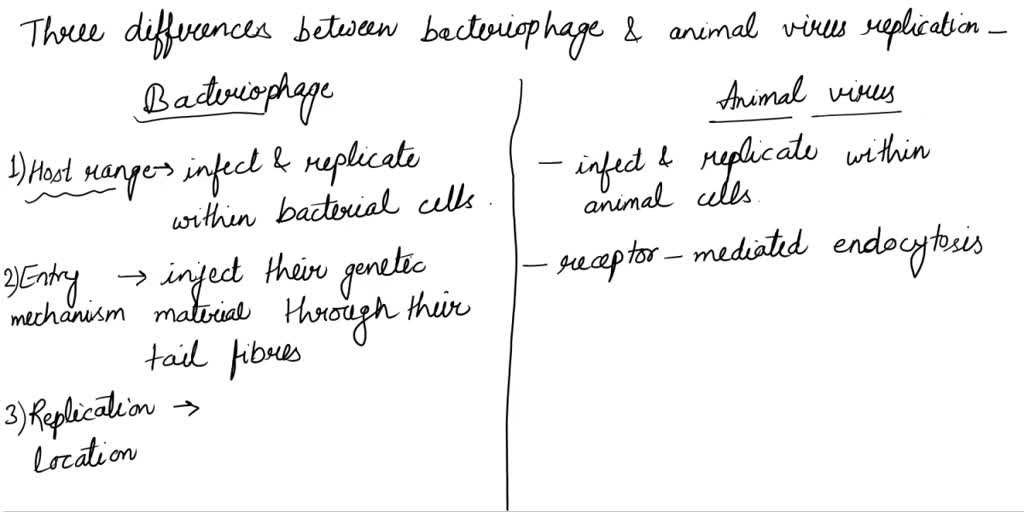 Three differences between bacteriophage & animal virus replication -
Bacteriophage
1) Host range → infect & replicate
within bacterial cells.
2) Entry → inject their genetic
mechanism material through their
tail fibres
3) Replication →
location
Animal virus
- infect & replicate within
animal cells.
- receptor - mediated endocytosis